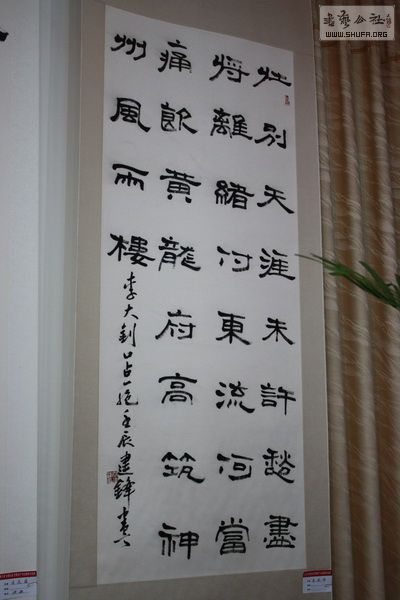 壯別天涯未許愁盡
將離緒付東流何當
痛飲黃龍府高筑神
州風雨樓
李大釗口占一絕壬辰建鋒書
書藝公社
WWW.SHUFA.ORG